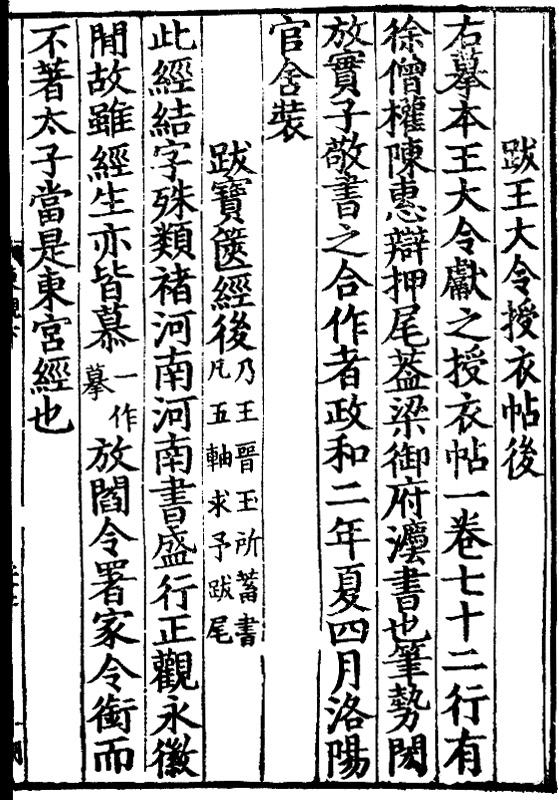 跋王大令授衣帖後
右摹本王大令獻之授衣帖一卷七十二行有
徐僧權陳惠辯押尾葢梁御府灋書也筆勢閎
放實子敬書之合作者政和二年夏四月洛陽
官舍裝
跋寶篋經後乃王晉玉所蓄書凡五軸求予跋尾
此經結字殊類褚河南河南書盛行正觀永徽
閒故雖經生亦皆慕一作摹放閻令署家令銜而
不著太子當是東宮經也